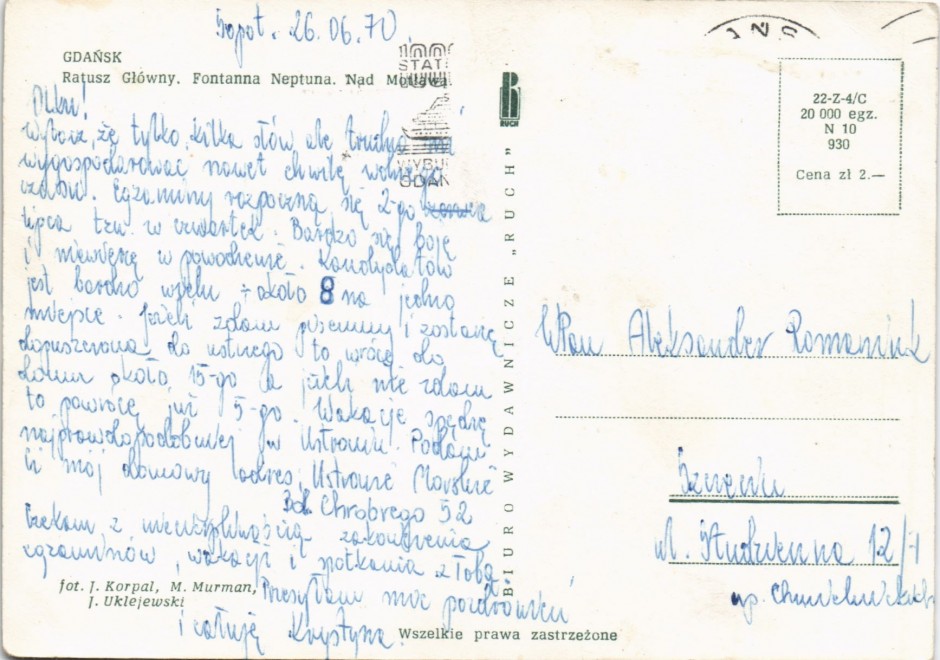 Sopot. 26.06.70.
GDAŃSK
Ratusz Główny. Fontanna Neptuna. Nad Motławą
Olku!
Wybacz, że tylko kilka słów ale trudno mi
wygospodarować nawet chwilę wolnego
czasu. Egzaminy rozpoczną się 2-go czerwca
lipca tzw. w czwartek. Bardzo się boję
i niewierzę w powodzenie. Kandydatów
jest bardzo wielu - około 8 na jedno
miejsce. Jeżeli zdam pisemny i zostanę
dopuszczona do ustnego to wrócę do
domu około 15-go a jeżeli nie zdam
to powrócę już 5-go. Wakacje spędzę
najprawdopodobniej w Ustroniu. Podam
Ci mój domowy adres, Ustronie Morskie
Bol. Chrobrego 52
Czekam z niecierpliwością zakończenia
egzaminów, wakacji i spotkania z Tobą
Przesyłam moc pozdrowień
i całuję Krystyna.
fot. J. Korpal, M. Murman,
J. Uklejewski
Wszelkie prawa zastrzeżone
BIURO WYDAWNICZE „RUCH”
RUCH
STAT
GDAŃ
22-Z-4/C
20 000 egz.
N 10
930
Cena zł 2.—
WPan Aleksander Romaniuk
ul. Studzienna 12/7